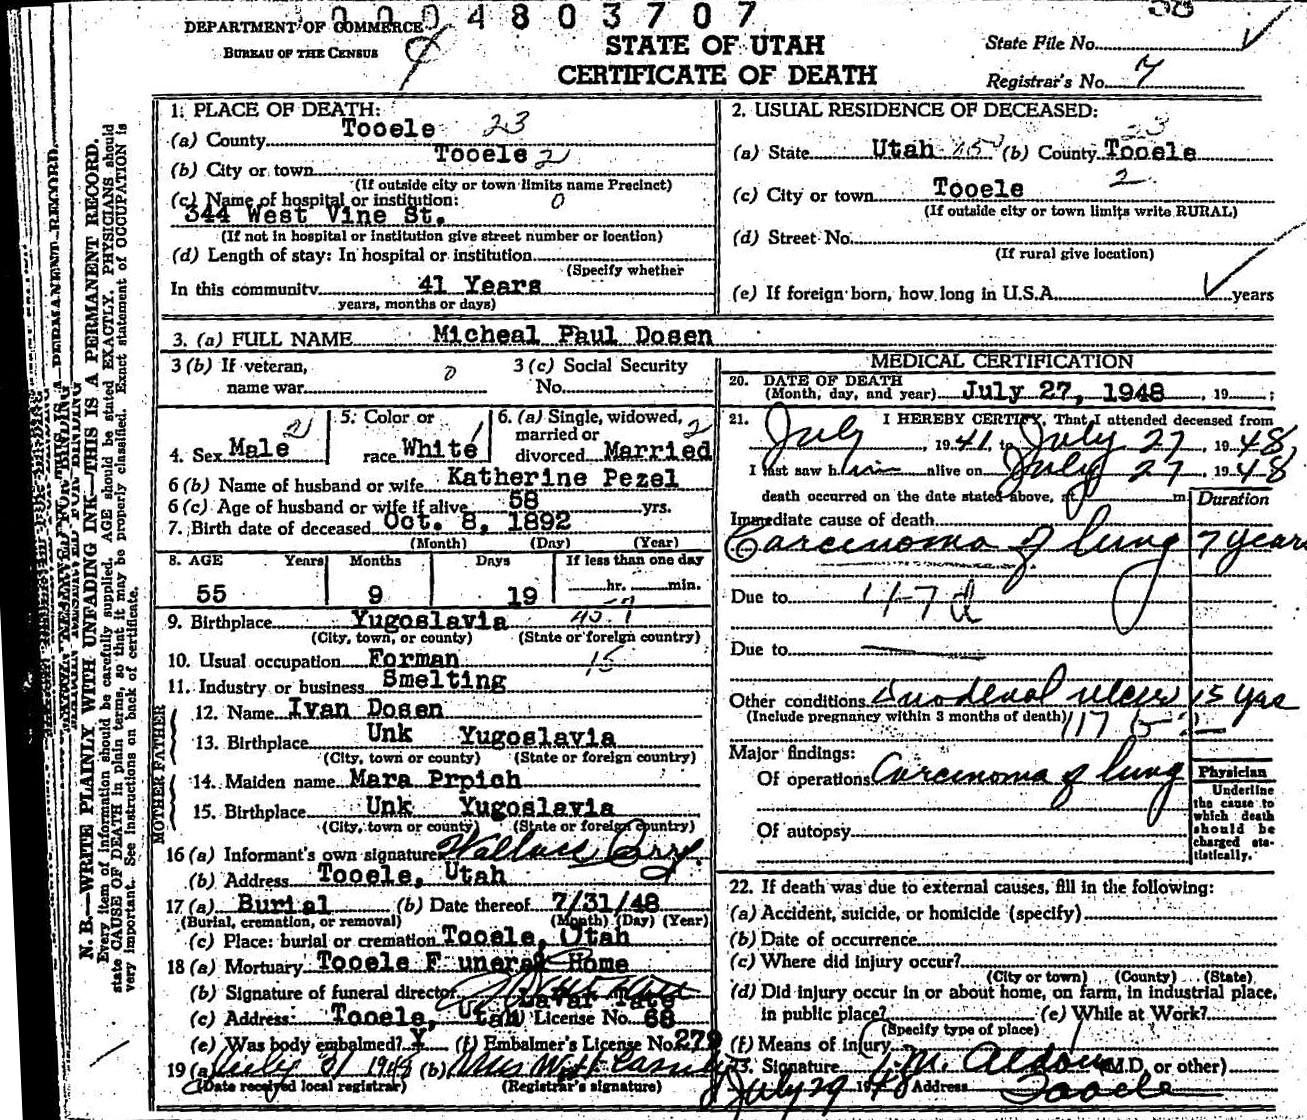 0004803707
DEPARTMENT OF COMMERCE
BUREAU OF THE CENSUS
STATE OF UTAH
CERTIFICATE OF DEATH
State File No.
Registrar's No. 7
1. PLACE OF DEATH:
(a) County Tooele 23
(b) City or town Tooele 2
(If outside city or town limits name Precinct)
(c) Name of hospital or institution: 0
344 West Vine St.
(If not in hospital or institution give street number or location)
(d) Length of stay: In hospital or institution
(Specify whether
In this community 41 Years
years, months or days)
2. USUAL RESIDENCE OF DECEASED:
23
(a) State Utah (b) County Tooele
(c) City or town Tooele 2
(If outside city or town limits write RURAL)
(d) Street No.
(If rural give location)
(e) If foreign born, how long in U.S.A. years
3. (a) FULL NAME Micheal Paul Dosen
3 (b) If veteran, name war 0
3 (c) Social Security No.
4. Sex Male 2
5. Color or race White 1
6. (a) Single, widowed, married or divorced Married 2
6 (b) Name of husband or wife Katherine Pezel
6 (c) Age of husband or wife if alive 58 yrs.
7. Birth date of deceased Oct. 8, 1892
(Month) (Day) (Year)
8. AGE Years Months Days If less than one day
55 9 19 hr. min.
9. Birthplace Yugoslavia
(City, town, or county) (State or foreign country)
10. Usual occupation Forman 15
11. Industry or business Smelting
FATHER
12. Name Ivan Dosen
13. Birthplace Unk Yugoslavia
(City, town or county) (State or foreign country)
MOTHER
14. Maiden name Mara Prpich
15. Birthplace Unk Yugoslavia
(City, town or county) (State or foreign country)
16 (a) Informant's own signature Wallace
(b) Address Tooele, Utah
17 (a) Burial (b) Date thereof 7/31/48
(Burial, cremation, or removal) (Month) (Day) (Year)
(c) Place: burial or cremation Tooele, Utah
18 (a) Mortuary Tooele Funeral Home
(b) Signature of funeral director
LaVar Tate
(c) Address: Tooele, Utah License No. 68
(e) Was body embalmed? Y (f) Embalmer's License No. 279
19 (a) July 31 1948 (b) Mrs
(Date received local registrar) (Registrar's signature)
MEDICAL CERTIFICATION
20. DATE OF DEATH
(Month, day, and year) July 27, 1948, 19 ;
21. I HEREBY CERTIFY, That I attended deceased from
July 1941, to July 27 1948
I last saw him alive on July 27 1948
death occurred on the date stated above, at m
Duration
Immediate cause of death
Carcinoma of lung 7 years
Due to 47d
Due to
Other conditions Duodenal ulcer 15 yrs
(Include pregnancy within 3 months of death) 117
Major findings:
Of operations Carcinoma of lung
Of autopsy
Physician
Underline
the cause to
which death
should be
charged sta-
tistically.
22. If death was due to external causes, fill in the following:
(a) Accident, suicide, or homicide (specify)
(b) Date of occurrence
(c) Where did injury occur?
(City or town) (County) (State)
(d) Did injury occur in or about home, on farm, in industrial place,
in public place? (e) While at Work?
(Specify type of place)
(f) Means of injury
23. Signature M. (M.D. or other)
July 29 1948 Address Tooele
N. B.—WRITE PLAINLY WITH UNFADING INK—THIS IS A PERMANENT RECORD.
Every item of information should be carefully supplied. AGE should be stated EXACTLY. PHYSICIANS should
state CAUSE OF DEATH in plain terms, so that it may be properly classified. Exact statement of OCCUPATION is
very important. See instructions on back of certificate.